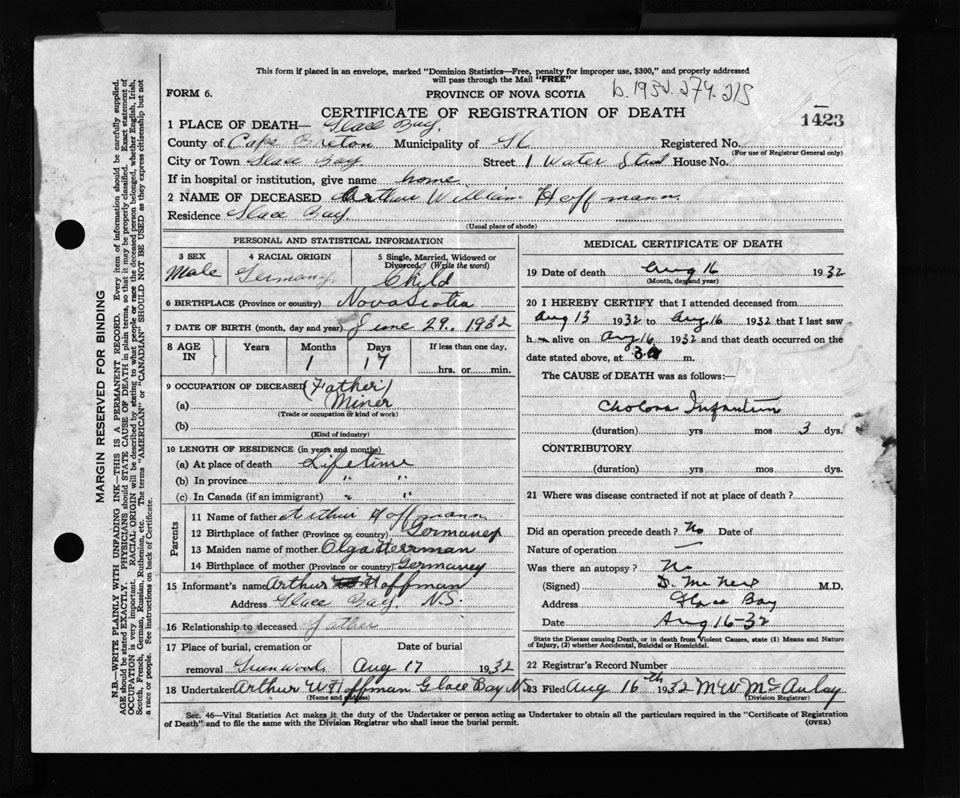 This form if placed in an envelope, marked "Dominion Statistics—Free, penalty for improper use, $300," and properly addressed
will pass through the Mail "FREE"
FORM 6.
PROVINCE OF NOVA SCOTIA
CERTIFICATE OF REGISTRATION OF DEATH
1423
1 PLACE OF DEATH— Glace Bay.
County of Cape Breton Municipality of Registered No.
(For use of Registrar General only)
City or Town Glace Bay. Street 1 Water House No.
If in hospital or institution, give name home
2 NAME OF DECEASED Arthur William Hoffmann.
Residence Glace Bay.
(Usual place of abode)
PERSONAL AND STATISTICAL PARTICULARS
3 SEX Male
4 RACIAL ORIGIN Germany.
5 Single, Married, Widowed or
Divorced. (Write the word)
Child
6 BIRTHPLACE (Province or country) Nova Scotia
7 DATE OF BIRTH (month, day and year) June 29. 1932
8 AGE IN Years Months 1 Days 17 If less than one day,
......hrs. or ......min.
9 OCCUPATION OF DECEASED (Father)
(a) Miner
(Trade or occupation or kind of work)
(b)
(Kind of industry)
10 LENGTH OF RESIDENCE (in years and months)
(a) At place of death Lifetime
(b) In province " "
(c) In Canada (if an immigrant) " "
Parents
11 Name of father Arthur Hoffmann
12 Birthplace of father (Province or country) Germaney
13 Maiden name of mother Olga Herrman
14 Birthplace of mother (Province or country) Germaney
15 Informant's name Arthur Hoffman
Address Glace Bay. N.S.
16 Relationship to deceased father
17 Place of burial, cremation or Date of burial
removal Greenwood Aug 17 1932
18 Undertaker Arthur W Hoffman Glace Bay N.S.
(Name and address)
MEDICAL CERTIFICATE OF DEATH
19 Date of death Aug 16 1932
(Month, day and year)
20 I HEREBY CERTIFY that I attended deceased from
Aug 13 1932 to Aug 16 1932 that I last saw
h m alive on Aug 16 1932 and that death occurred on the
date stated above, at m.
The CAUSE of DEATH was as follows:—
Cholora Infantum
(duration) yrs mos 3 dys.
CONTRIBUTORY
(duration) yrs mos dys.
21 Where was disease contracted if not at place of death?
Did an operation precede death? No Date of
Nature of operation —
Was there an autopsy? No
(Signed) D. McNeil M.D.
Address Glace Bay
Date Aug 16-32
State the Disease causing Death, or in death from Violent Causes, state (1) Means and Nature
of Injury, (2) whether Accidental, Suicidal or Homicidal.
22 Registrar's Record Number
23 Filed Aug 16th 1932 M W McAulay
(Division Registrar)
Sec. 46—Vital Statistics Act makes it the duty of the Undertaker or person acting as Undertaker to obtain all the particulars required in the "Certificate of Registration
of Death" and to file the same with the Division Registrar who shall issue the burial permit. (OVER)
MARGIN RESERVED FOR BINDING
N.B.—WRITE PLAINLY WITH UNFADING INK—THIS IS A PERMANENT RECORD. Every item of information should be carefully supplied.
AGE should be stated EXACTLY. PHYSICIANS should STATE CAUSE OF DEATH in plain terms, so that it may be properly classified. Exact statement of
OCCUPATION is very important. RACIAL ORIGIN will be described by stating to what people or race the deceased person belonged, whether English, Irish,
Scotch, French, German, Russian, Ruthenian, etc. The terms "AMERICAN" or "CANADIAN" SHOULD NOT BE USED as they express citizenship but not
a race or people. See instructions on back of Certificate.